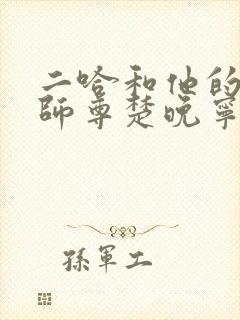 二哈和他的
師尊楚晚寧
孫軍工